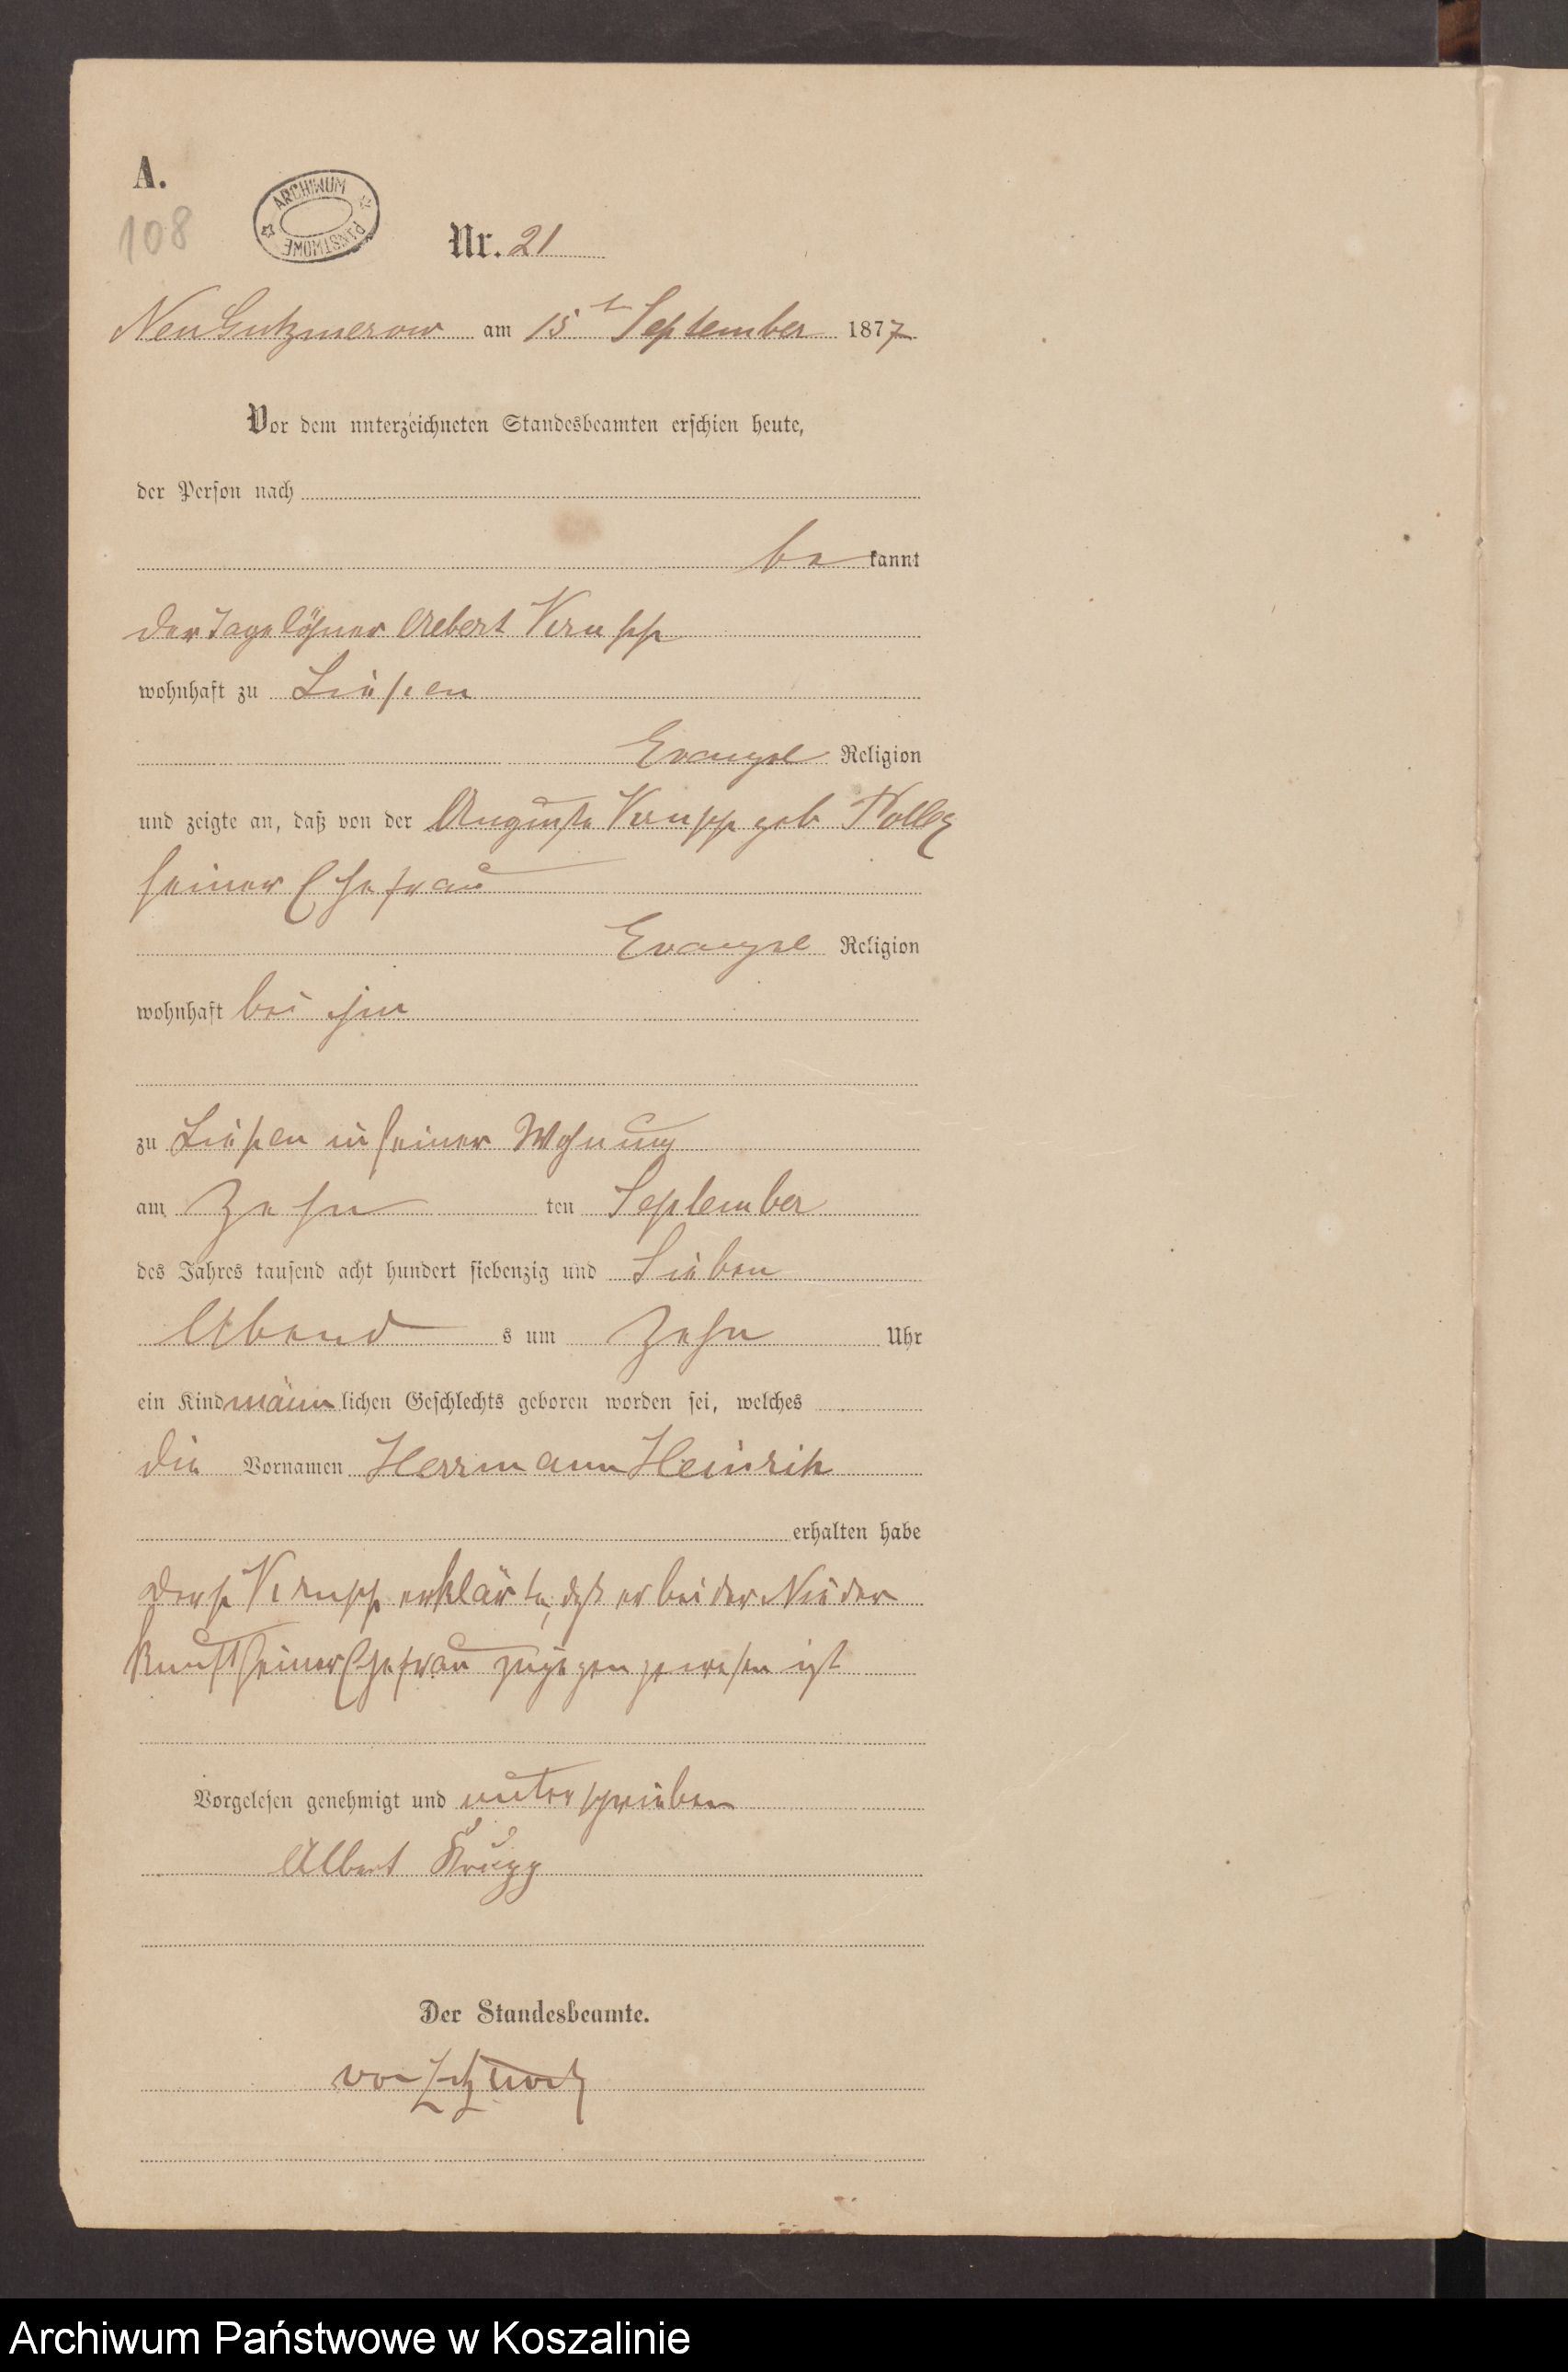 A.
108
ARCHIWUM PAŃSTWOWE
Nr. 21
Neu Gutzmerow am 15t September 1877
Vor dem unterzeichneten Standesbeamten erschien heute,
der Person nach
be kannt
der Tagelöhner Albert Krupp
wohnhaft zu
Evangel Religion
und zeigte an, daß von der Auguste Krupp geb
seiner Ehefrau
Evangel Religion
wohnhaft bei ihm
zu in seiner Wohnung
am Zehn ten September
des Jahres tausend acht hundert siebenzig und Sieben
Abend s um Zehn Uhr
ein Kind männ lichen Geschlechts geboren worden sei, welches
die Vornamen Herrmann Heinrih
erhalten habe
Krupp erklärte, daß er bei der Nieder
kunft seiner Ehefrau zugegen gewesen ist
Vorgelesen genehmigt und unterschrieben
Albert Krupp
Der Standesbeamte.
von
Archiwum Państwowe w Koszalinie